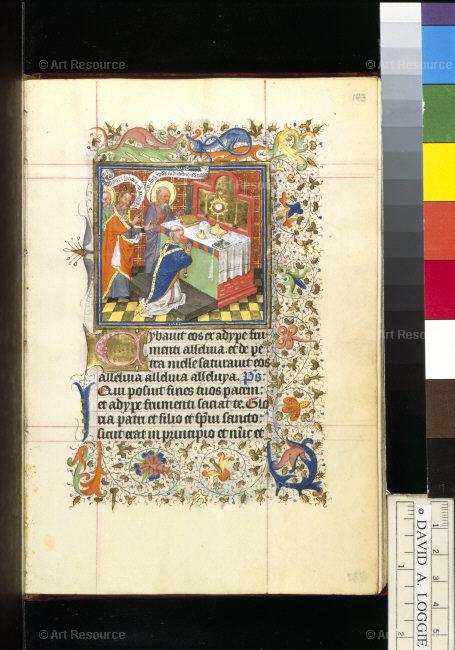 © Art Resource
© Art Resource
143
ybauit eos ex adype fru
menti alleluia. et de pe
tra melle saturauit eos
alleluia alleluia alleluya. Ps
Qui posuit fines tuos pacem:
et adype frumenti saciat te. Glo
ria patri et filio et spiritui sancto
sicut erat in principio et nunc et
© DAVID A. LOGGIE
1
2
1
2
3
4
5
© Art Resource
© Art Resource